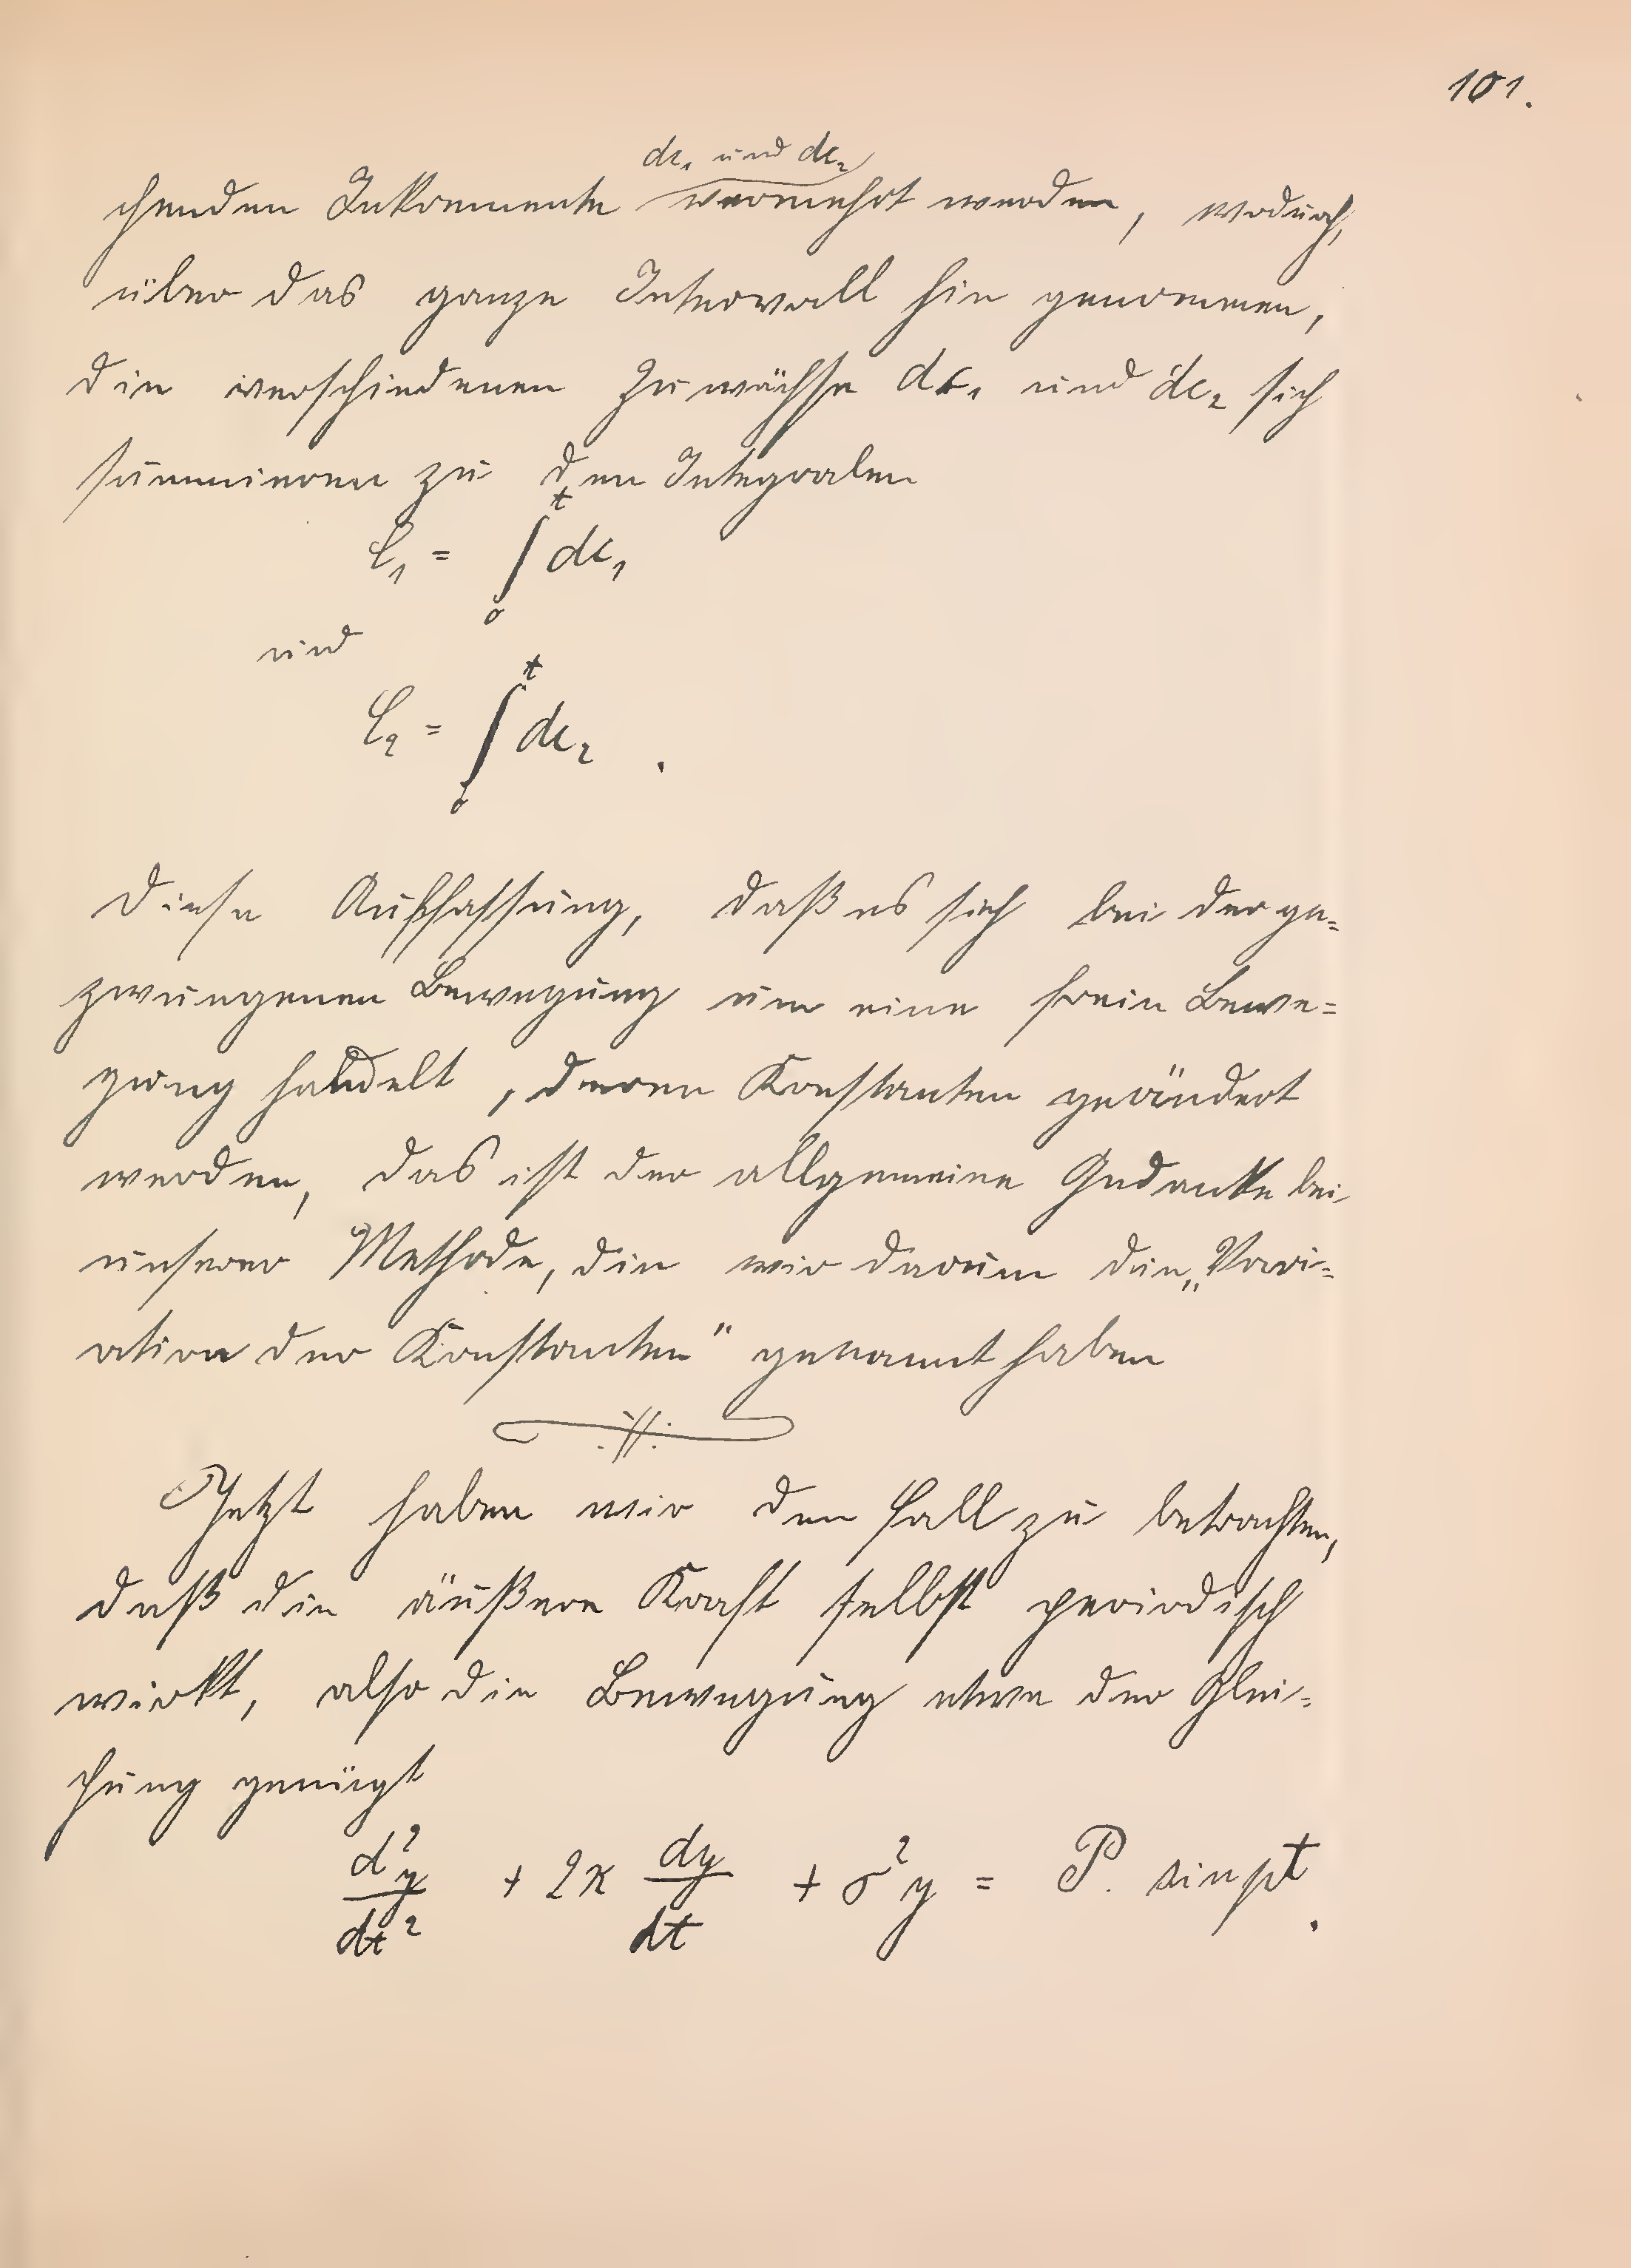 101.
dc₁ und dc₂
chenden Inkremente vermehrt werden, wodurch,
über das ganze Intervall hin genommen,
die verschiedenen Zuwächse dc₁ und dc₂ sich
summieren zu den Integralen
C₁ = ∫₀ᵗ dc₁
und
C₂ = ∫₀ᵗ dc₂ .
Diese Auffassung, daß es sich bei der ge=
zwungenen Bewegung um eine freie Bewe=
gung handelt, deren Konstanten geändert
werden, das ist der allgemeine Gedanke bei
unserer Methode, die wir darum die „Vari=
ation der Konstanten" genannt haben
Jetzt haben wir den Fall zu betrachten,
daß die äußere Kraft selbst periodisch
wirkt, also die Bewegung etwa der Glei=
chung genügt
d²y/dt² + 2κ dy/dt + σ²y = P. sin pt.